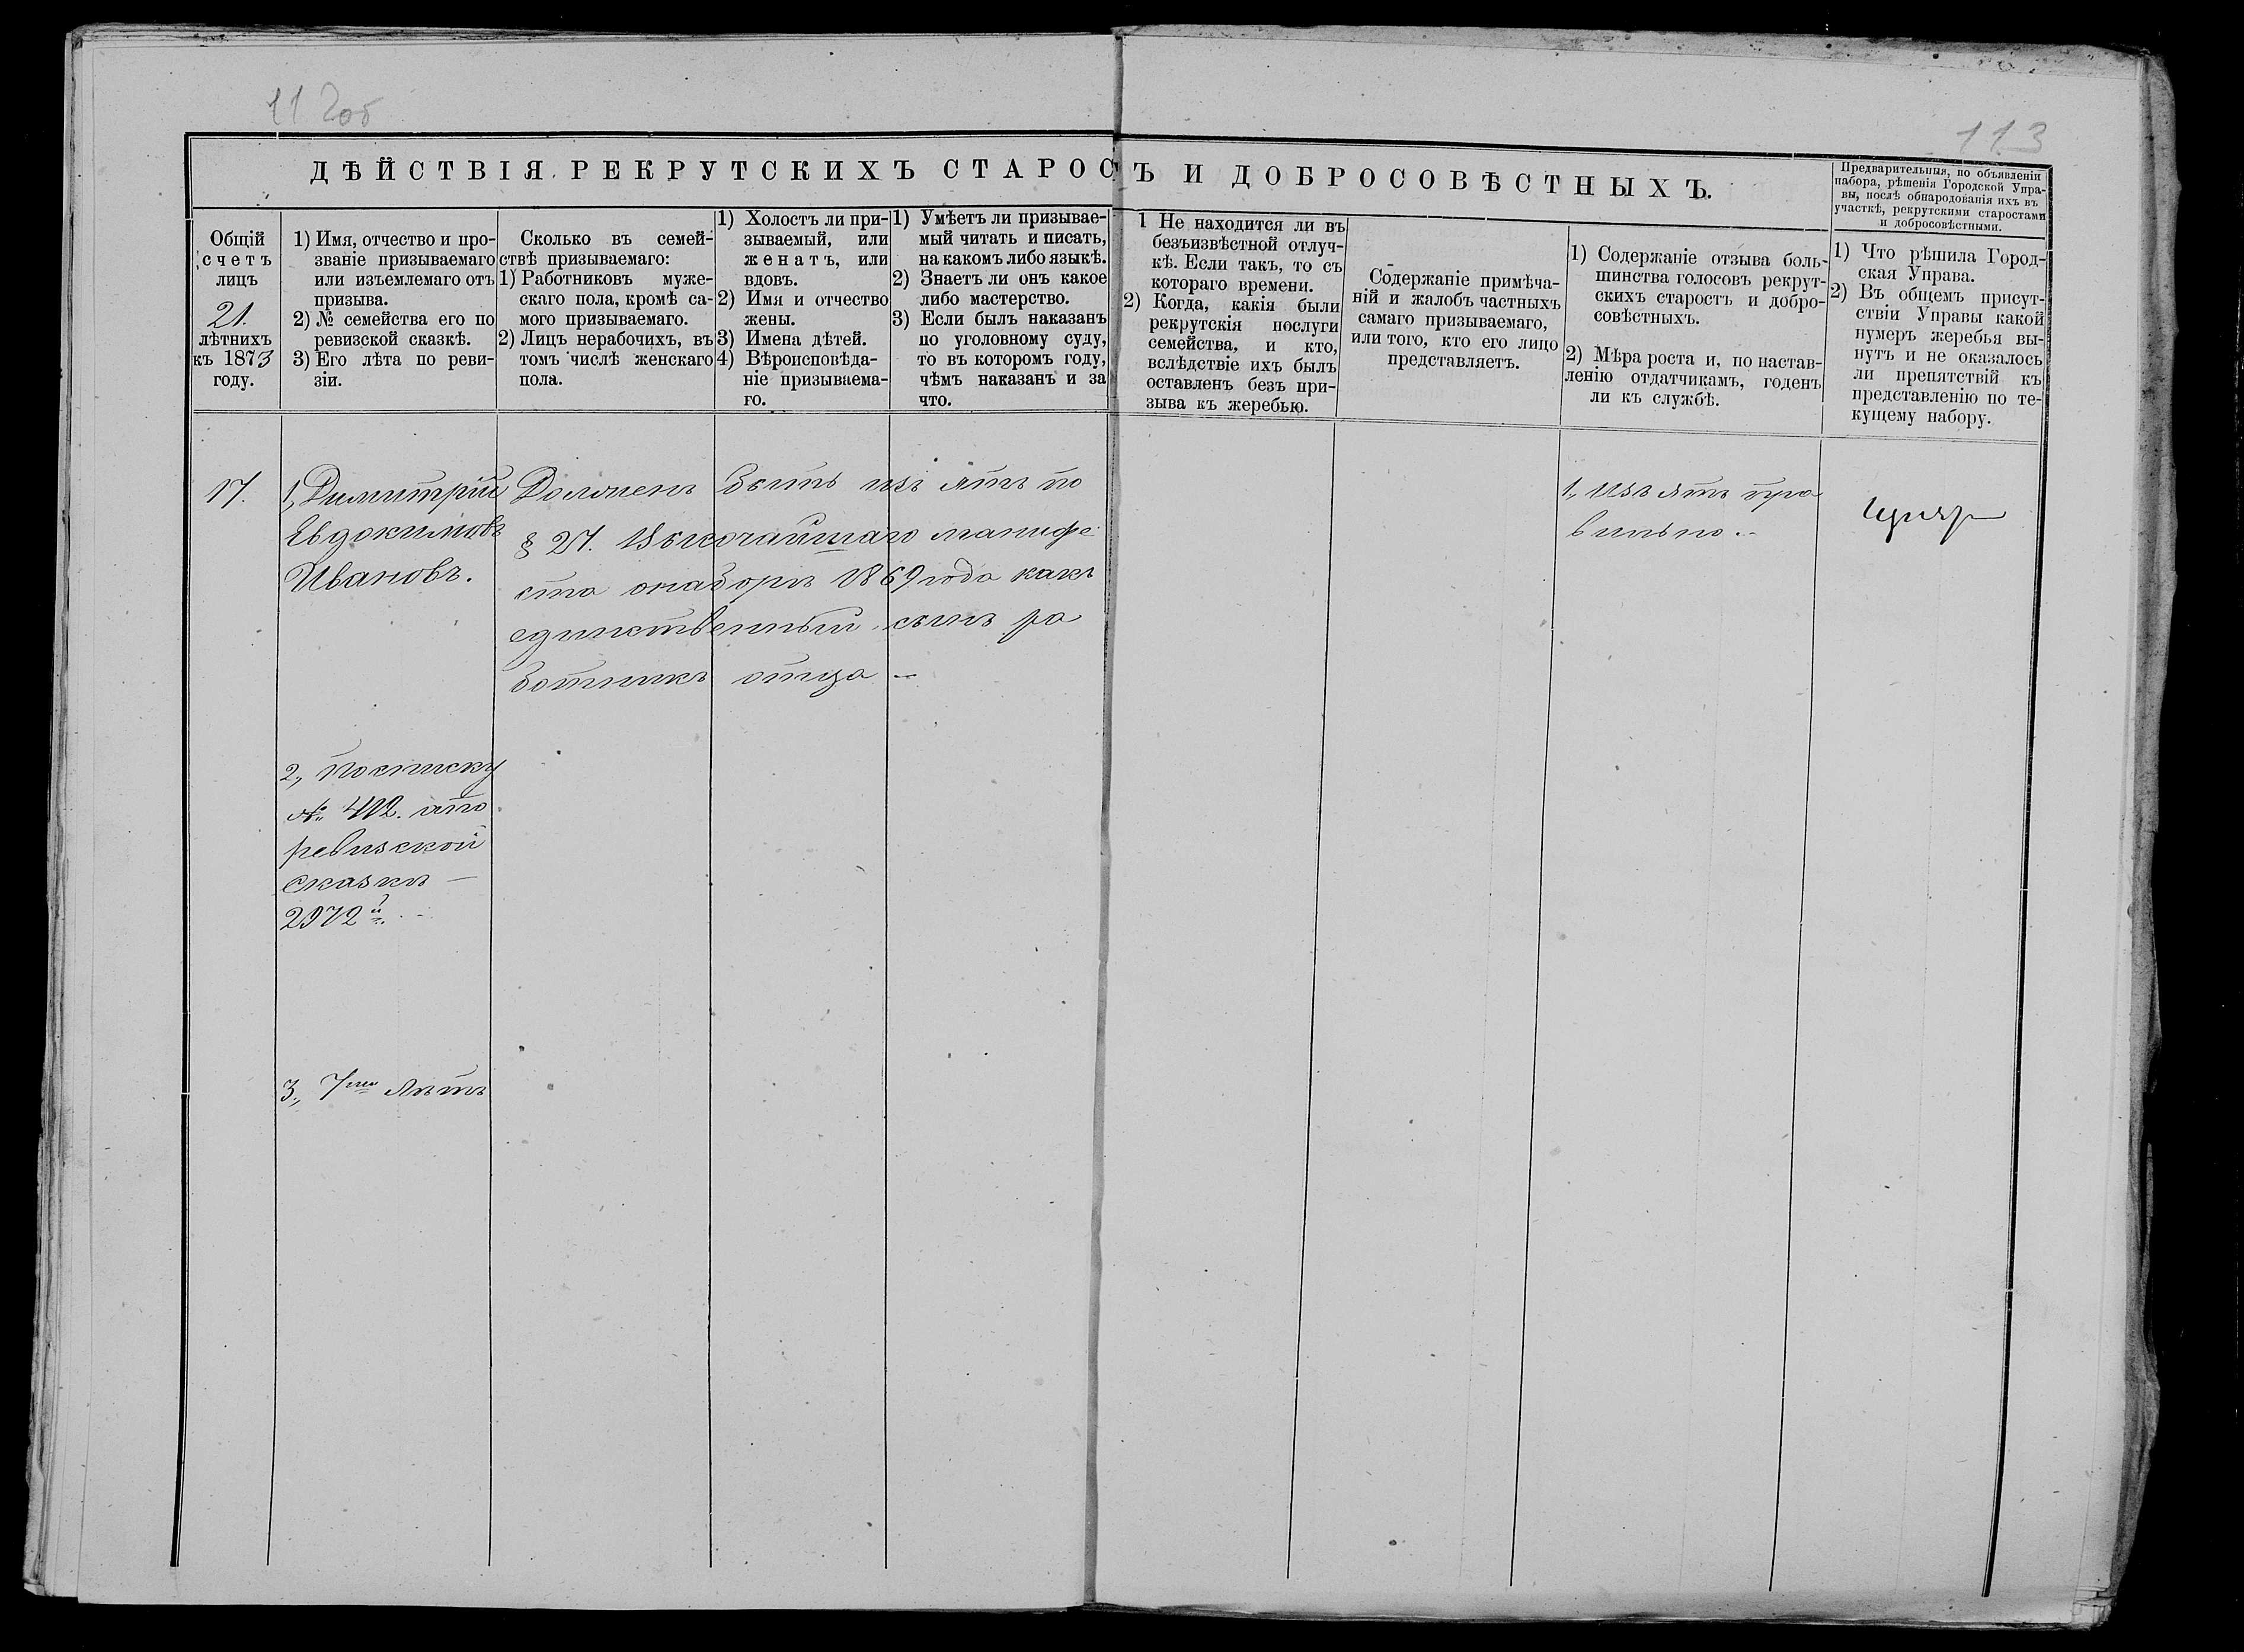 112об
113
ДѢЙСТВІЯ РЕКРУТСКИХЪ СТАРОСТЪ И ДОБРОСОВѢСТНЫХЪ.
Предварительныя, по объявленіи
набора, рѣшенія Городской Упра-
вы, послѣ обнародованія ихъ въ
участкѣ, рекрутскими старостами
и добросовѣстными.
Общій
счетъ
лицъ
21.
лѣтнихъ
къ 1873
году.
1) Имя, отчество и про-
званіе призываемаго
или изъемлемаго отъ
призыва.
2) № семейства его по
ревизской сказкѣ.
3) Его лѣта по реви-
зіи.
Сколько въ семей-
ствѣ призываемаго:
1) Работниковъ муже-
скаго пола, кромѣ са-
мого призываемаго.
2) Лицъ нерабочихъ, въ
томъ числѣ женскаго
пола.
1) Холостъ ли при-
зываемый, или
женатъ, или
вдовъ.
2) Имя и отчество
жены.
3) Имена дѣтей.
4) Вѣроисповѣда-
ніе призываема-
го.
1) Умѣетъ ли призывае-
мый читать и писать,
на какомъ либо языкѣ.
2) Знаетъ ли онъ какое
либо мастерство.
3) Если былъ наказанъ
по уголовному суду,
то въ которомъ году,
чѣмъ наказанъ и за
что.
1 Не находится ли въ
безъизвѣстной отлуч-
кѣ. Если такъ, то съ
котораго времени.
2) Когда, какія были
рекрутскія послуги
семейства, и кто,
вслѣдствіе ихъ былъ
оставленъ безъ при-
зыва къ жеребью.
Содержаніе примѣча-
ній и жалобъ частныхъ
самаго призываемаго,
или того, кто его лицо
представляетъ.
1) Содержаніе отзыва боль-
шинства голосовъ рекрут-
скихъ старостъ и добро-
совѣстныхъ.
2) Мѣра роста и, по настав-
ленію отдатчикамъ, годенъ
ли къ службѣ.
1) Что рѣшила Город-
ская Управа.
2) Въ общемъ присут-
ствіи Управы какой
нумеръ жеребья вы-
нутъ и не оказалось
ли препятствій къ
представленію по те-
кущему набору.
17.
1, Димитрій
Евдокимовъ
Ивановъ.
Долженъ быть изъ ятъ по
§ 27. Высочайшаго манифе
ста онаборѣ 1869 года какъ
единственный сынъ ра
ботникъ отца
1, Изъ ятъ пра
вильно
2, Посписку
№ 412. апо
ревизской
Сказкѣ
2972й.
3, 7ми Лѣтъ